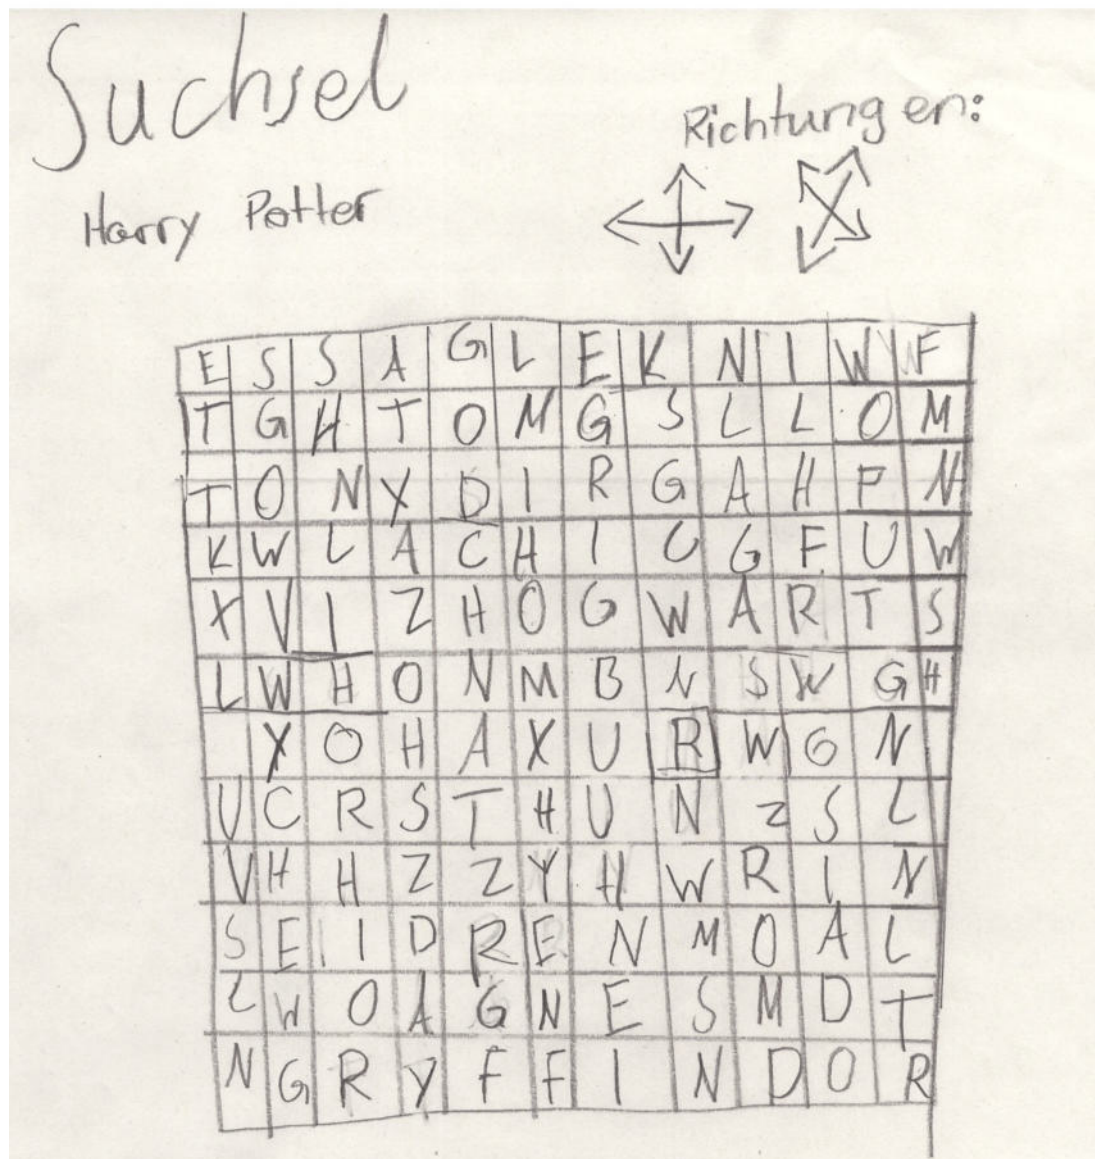 Suchsel
Richtungen:
Harry Potter
E S S A G L E K N I W F
T G H T O M G S L L O M
T O N X D I R G A H P N
K W L A C H I C G F U W
X V I Z H O G W A R T S
L W H O N M B N S W G H
X O H A X U R W G N
U C R S T H U N Z S L
V H H Z Z Y H W R I N
S E I D R E N M O A L
L W O A G N E S M D T
N G R Y F F I N D O R